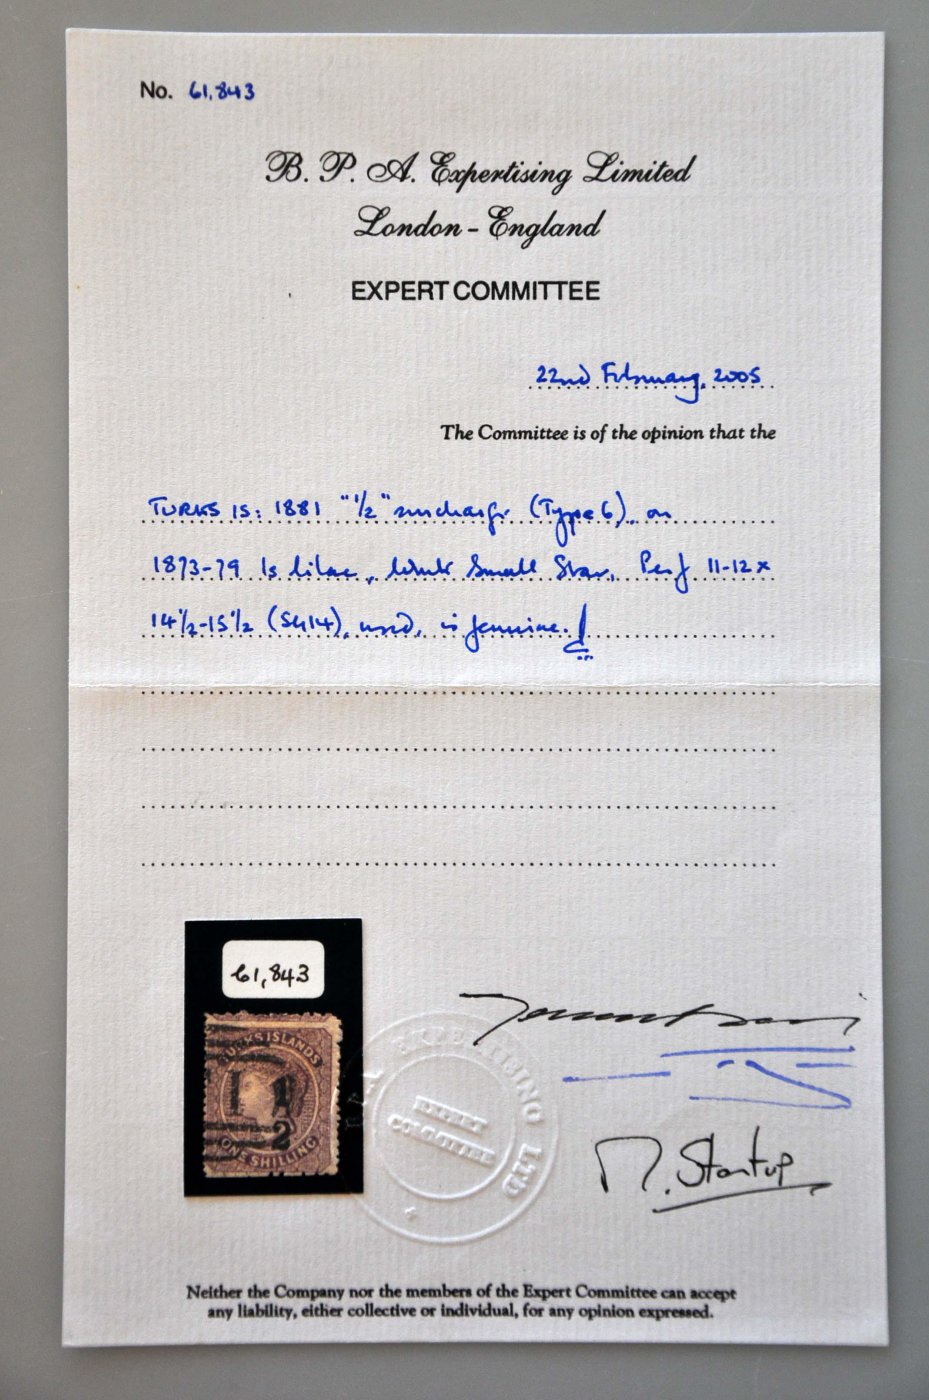 No. 61,843
B. P. A. Expertising Limited
London - England
EXPERT COMMITTEE
22nd February, 2005
The Committee is of the opinion that the
TURKS IS: 1881 "1/2" surcharge (Type 6), on
1873-79 1s lilac, Wmk Small Star, Perf 11-12 x
14½-15½ (SG14), used, is genuine.
61,843
TURKS ISLANDS
1 1
2
ONE SHILLING
EXPERTISING LTD
EXPERT
COMMITTEE
M. Startup
Neither the Company nor the members of the Expert Committee can accept
any liability, either collective or individual, for any opinion expressed.